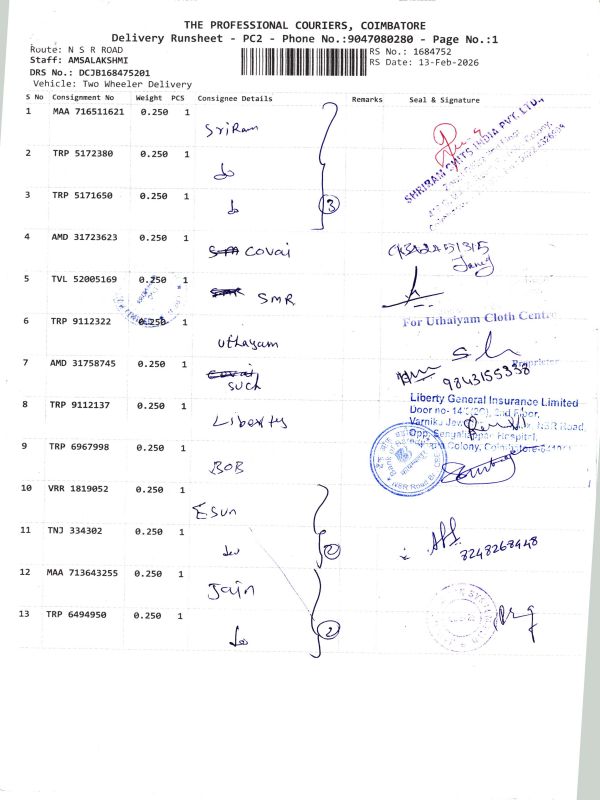 THE PROFESSIONAL COURIERS, COIMBATORE
Delivery Runsheet - PC2 - Phone No.:9047080280 - Page No.:1
Route: N S R ROAD
RS No.: 1684752
Staff: AMSALAKSHMI
RS Date: 13-Feb-2026
DRS No.: DCJB168475201
Vehicle: Two Wheeler Delivery
S No Consignment No Weight PCS Consignee Details Remarks Seal & Signature
1 MAA 716511621 0.250 1 SriRam
SHRIRAM INDIA PVT. LTD.,
2 TRP 5172380 0.250 1 do
3 TRP 5171650 0.250 1 do 3
4 AMD 31723623 0.250 1 covai
5 TVL 52005169 0.250 1 SMR
6 TRP 9112322 0.250 1 uthayam
For Uthaiyam Cloth Centre
Proprietor
7 AMD 31758745 0.250 1 covai such
9843155338
8 TRP 9112137 0.250 1 Liberty
Liberty General Insurance Limited
Door no- 2nd Floor,
Varnika NSR Road,
Opp. Hospital,
Colony, Coimbatore-
9 TRP 6967998 0.250 1 BOB
NSR Road
10 VRR 1819052 0.250 1 Esun
11 TNJ 334302 0.250 1 do 2
8248268448
12 MAA 713643255 0.250 1 Jain
13 TRP 6494950 0.250 1 do 2